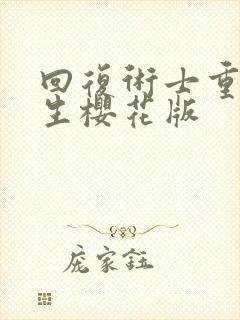 回復術士重
生櫻花版
庞家鈺